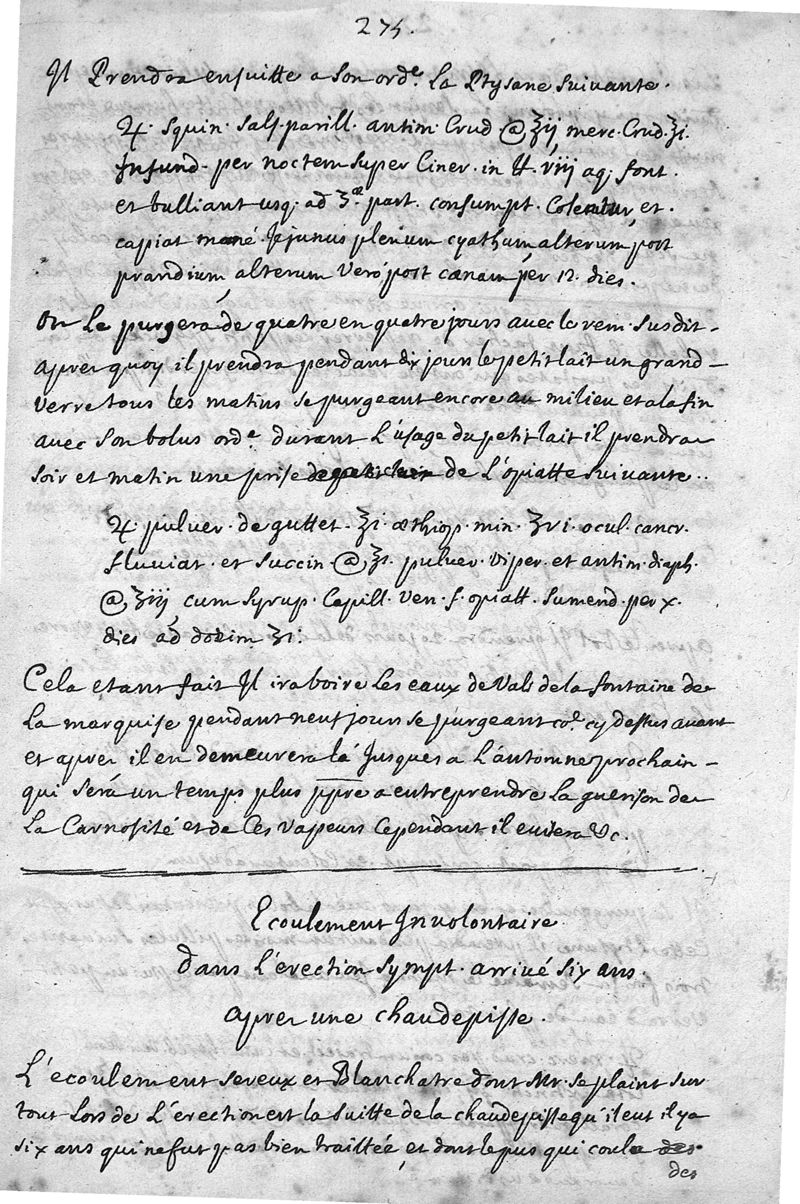 275.
Il Prendra ensuitte a son ord.e la Ptysane suivante.
♃. squin. sals. parill. antim. Crud @ ʒij merc. Crud. ʒi.
Infund. per noctem super Ciner. in ℔. viij aq. font.
et bulliant usq. ad 3.æ part. consumpt. Colentur, et.
capiat mané Jejunus plenum cyathum alterum post
prandium, alterum veró post cœnam per 12. dies.
on le purgerá de quatre en quatre jours avec le rem. susdit.
aprer quoy il prendra pendant dix jours le petit lait un grand
verre tous les matins se purgeant encore au milieu et ala fin
avec son bolus ord.e durant l'úsage du petit lait il prendra
soir et matin une prise de l'opiatte suivante..
♃. pulver. de guttet. ʒi. æthiop. min. ʒvi. ocul. cancr.
fluviat. et succin. @ ʒi. pulver. viper. et antim. diaph.
@ ʒiij cum syrup. Capill. ven. f. opiatt. sumend. per x.
dies ad dosim ʒi.
Cela etant fait Il ira boire les eaux de Vals de la fontaine de
la marquise pendant neuf jours se purgeant co.e cy dessus avant
et aprer il en demeurera lá Jusques a l'automne prochain
qui será un temps plus ppre a entreprendre la guerison de
la Carnosité et de Ces vapeurs Cependant il evitera &c.
Ecoulement Involontaire
dans l'erection sympt. arrivé six ans
aprer une chaudepisse.
L'ecoulement sereux et Blanchatre dont Mr. se plaint sur
tout lors de l'erection est la suitte de la chaudepisse qu'il eut il ya
six ans qui ne fut pas bien traittée, et dont le pus qui coula
des